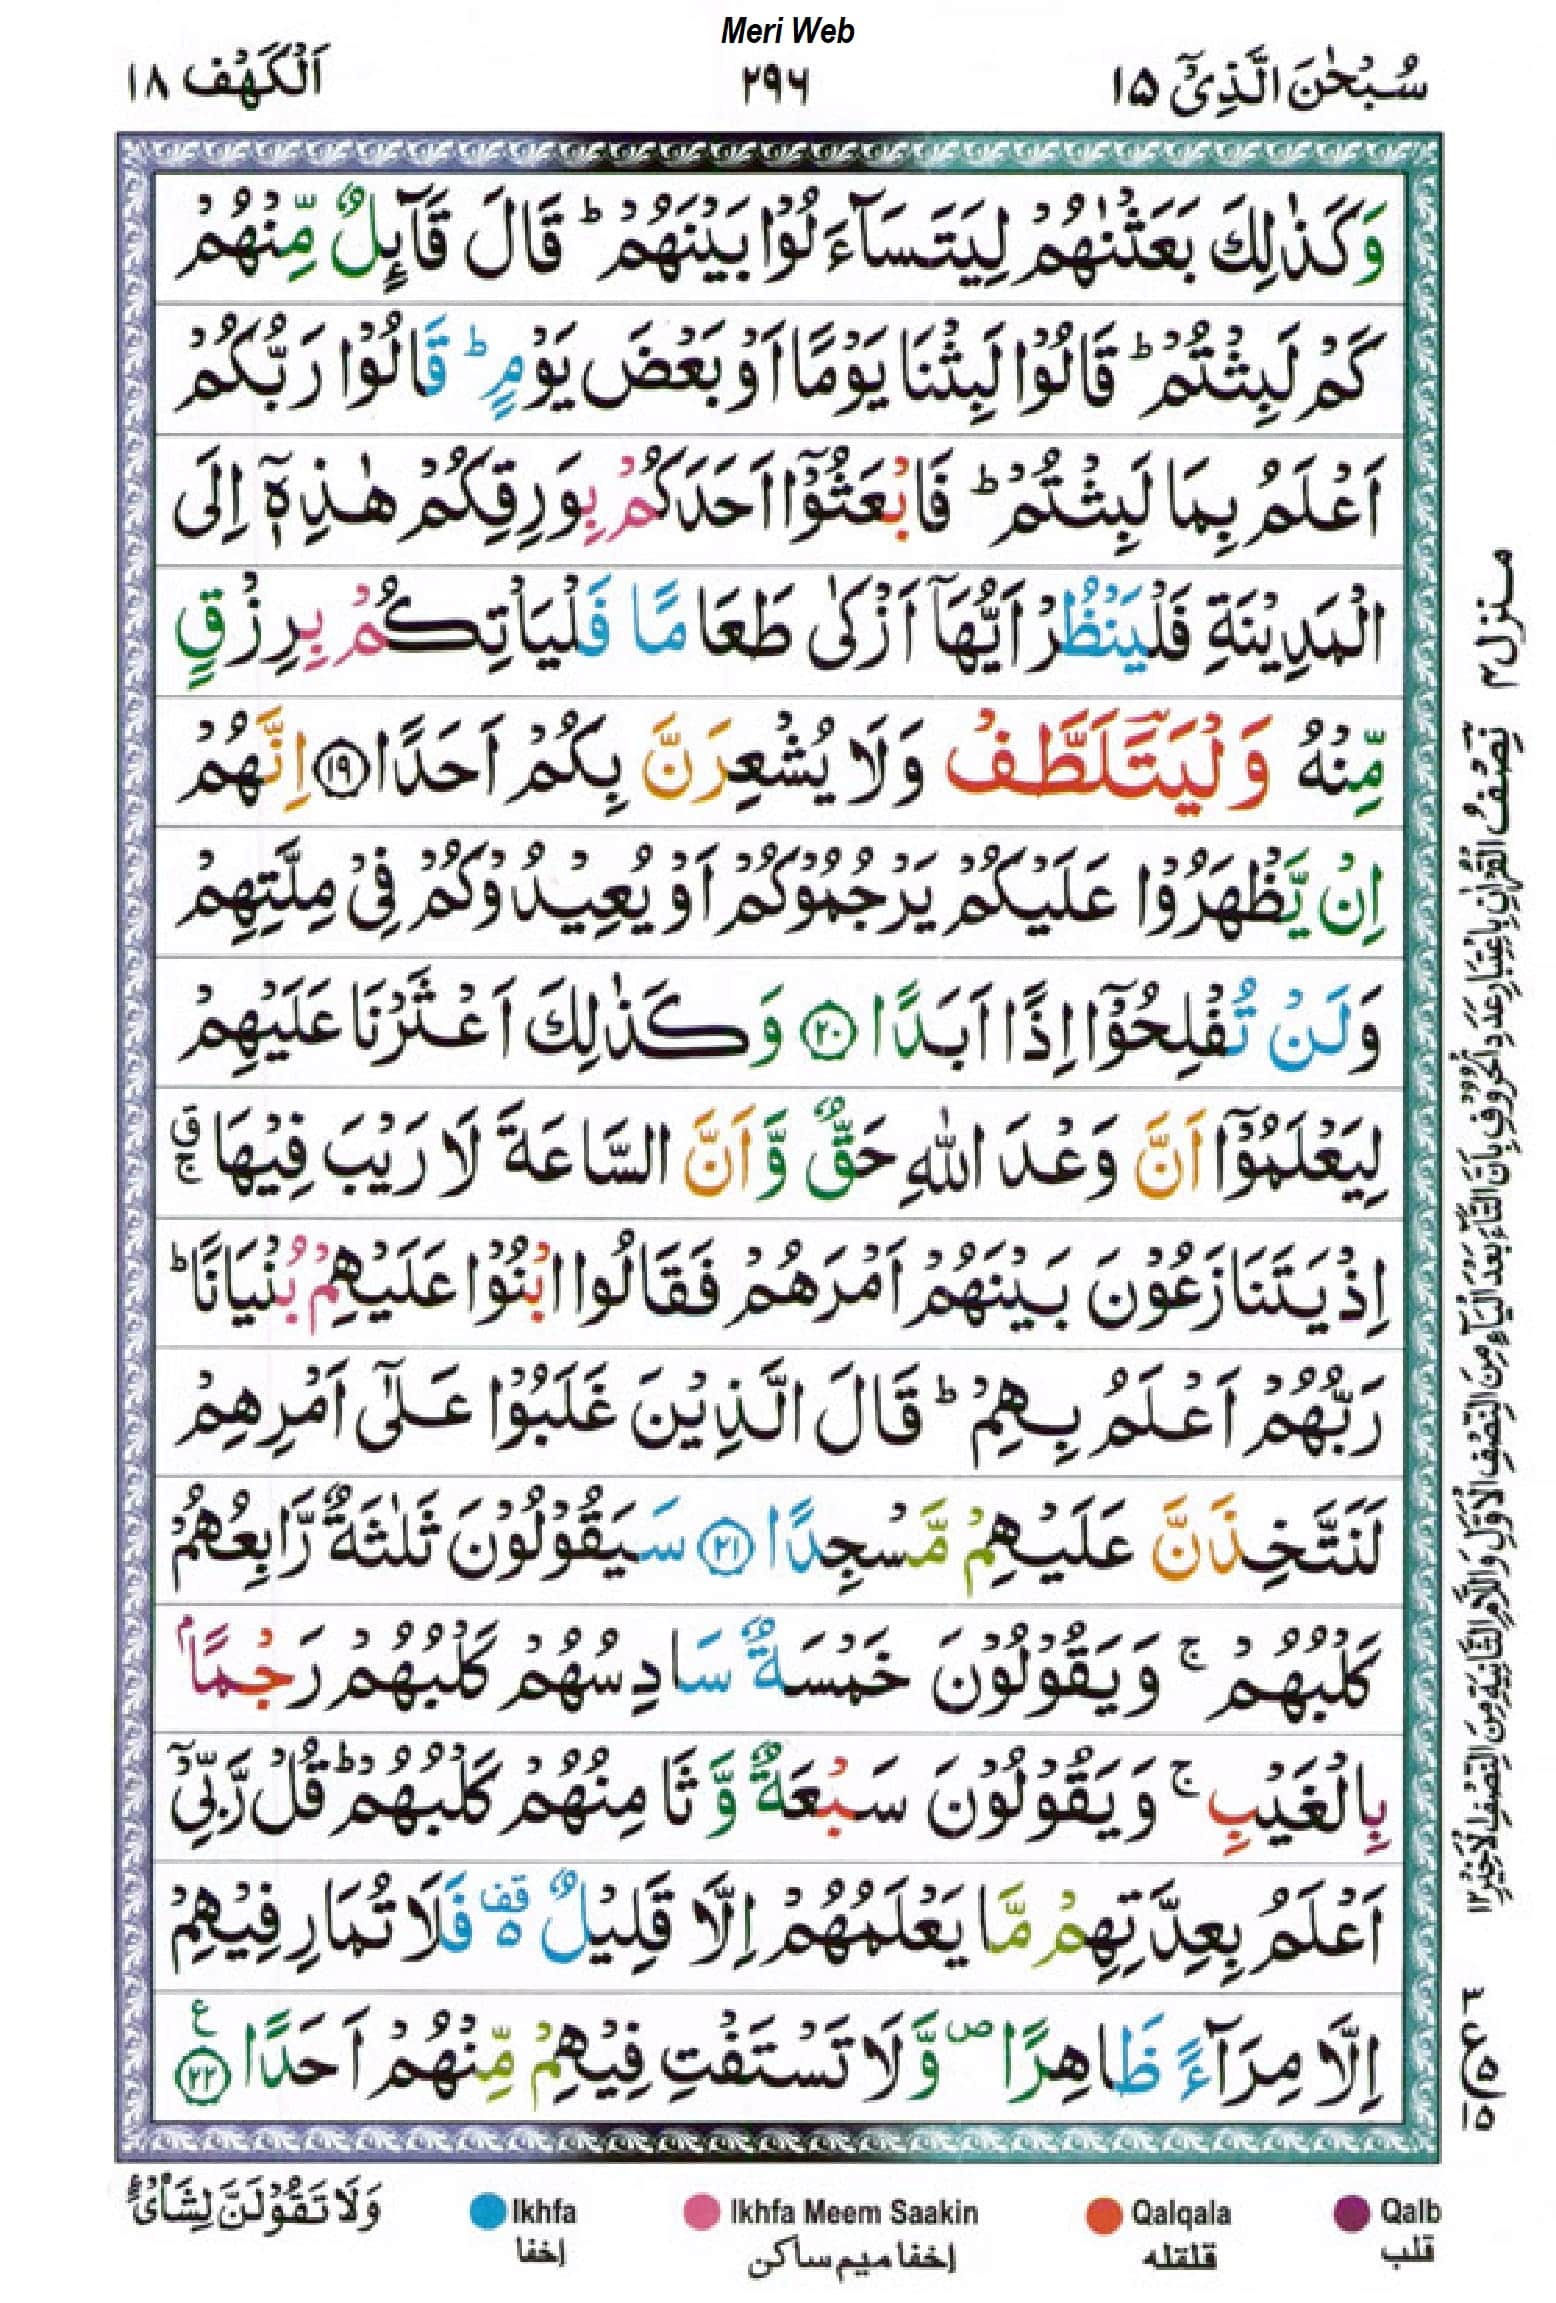 Meri Web
سُبْحٰنَ الَّذِیْۤ ۱۵
۲۹۶
اَلْكَهْف ۱۸
وَكَذٰلِكَ بَعَثْنٰهُمْ لِیَتَسَآءَلُوْا بَیْنَهُمْ ؕ قَالَ قَآىِٕلٌ مِّنْهُمْ
كَمْ لَبِثْتُمْ ؕ قَالُوْا لَبِثْنَا یَوْمًا اَوْ بَعْضَ یَوْمٍ ؕ قَالُوْا رَبُّكُمْ
اَعْلَمُ بِمَا لَبِثْتُمْ ؕ فَابْعَثُوْۤا اَحَدَكُمْ بِوَرِقِكُمْ هٰذِهٖۤ اِلَی
الْمَدِیْنَةِ فَلْیَنْظُرْ اَیُّهَاۤ اَزْكٰی طَعَامًا فَلْیَاْتِكُمْ بِرِزْقٍ
مِّنْهُ وَلْیَتَلَطَّفْ وَلَا یُشْعِرَنَّ بِكُمْ اَحَدًا ﴿۱۹﴾ اِنَّهُمْ
اِنْ یَّظْهَرُوْا عَلَیْكُمْ یَرْجُمُوْكُمْ اَوْ یُعِیْدُوْكُمْ فِیْ مِلَّتِهِمْ
وَلَنْ تُفْلِحُوْۤا اِذًا اَبَدًا ﴿۲۰﴾ وَكَذٰلِكَ اَعْثَرْنَا عَلَیْهِمْ
لِیَعْلَمُوْۤا اَنَّ وَعْدَ اللّٰهِ حَقٌّ وَّاَنَّ السَّاعَةَ لَا رَیْبَ فِیْهَا ۚۗ
اِذْ یَتَنَازَعُوْنَ بَیْنَهُمْ اَمْرَهُمْ فَقَالُوا ابْنُوْا عَلَیْهِمْ بُنْیَانًا ؕ
رَبُّهُمْ اَعْلَمُ بِهِمْ ؕ قَالَ الَّذِیْنَ غَلَبُوْا عَلٰۤی اَمْرِهِمْ
لَنَتَّخِذَنَّ عَلَیْهِمْ مَّسْجِدًا ﴿۲۱﴾ سَیَقُوْلُوْنَ ثَلٰثَةٌ رَّابِعُهُمْ
كَلْبُهُمْ ۚ وَیَقُوْلُوْنَ خَمْسَةٌ سَادِسُهُمْ كَلْبُهُمْ رَجْمًۢا
بِالْغَیْبِ ۚ وَیَقُوْلُوْنَ سَبْعَةٌ وَّثَامِنُهُمْ كَلْبُهُمْ ؕ قُلْ رَّبِّیْۤ
اَعْلَمُ بِعِدَّتِهِمْ مَّا یَعْلَمُهُمْ اِلَّا قَلِیْلٌ ۫ قف فَلَا تُمَارِ فِیْهِمْ
اِلَّا مِرَآءً ظَاهِرًا ۪ وَّلَا تَسْتَفْتِ فِیْهِمْ مِّنْهُمْ اَحَدًا ﴿۲۲﴾ ع
منزل ۴
نِصْفُ الْقُرْاٰنِ بِاعْتِبَارِ عَدَدِ الْحُرُوْفِ بِاَنَّ التَّاءَ بَعْدَ الْیَاءِ مِنَ النِّصْفِ الْاَوَّلِ وَاللَّامَ الثَّانِیَةَ مِنَ النِّصْفِ الْاَخِیْرِ ۱۲
ع
وَلَا تَقُوْلَنَّ لِشَایْءٍ
Ikhfa
إخفا
Ikhfa Meem Saakin
إخفا میم ساکن
Qalqala
قلقله
Qalb
قلب